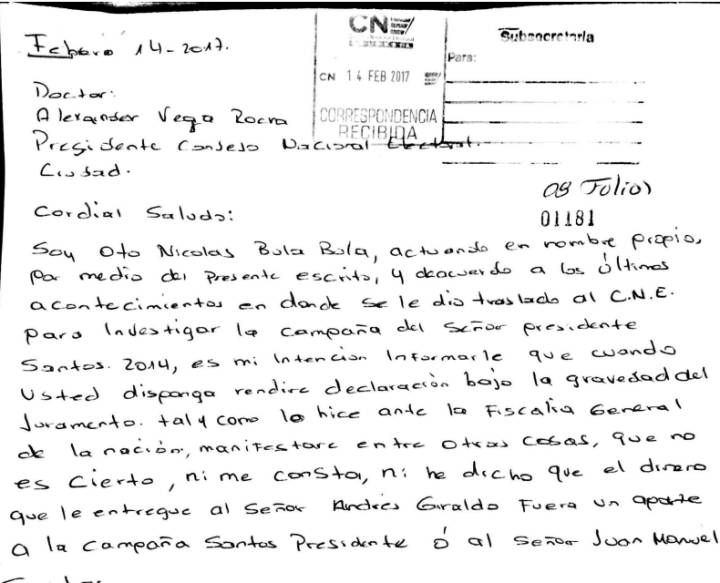 Febrero 14-2017.
CN
CN 14 FEB 2017
CORRESPONDENCIA
RECIBIDA
Subsecretaría
Para:
Doctor:
Alexander Vega Rocha
Presidente Consejo Nacional Electoral.
Ciudad.
08 Folios
01181
Cordial Saludo:
Soy Oto Nicolas Bula Bula, actuando en nombre propio,
por medio del presente escrito, y deacuerdo a los últimos
acontecimientos en donde se le dio traslado al C.N.E.
para Investigar la campaña del Señor presidente
Santos. 2014, es mi Intencion Informarle que cuando
Usted disponga rendire declaración bajo la gravedad del
Juramento. tal y como lo hice ante la Fiscalia General
de la nación, manifestare entre otras cosas, que no
es cierto, ni me consta, ni he dicho que el dinero
que le entregue al Señor Andrés Giraldo Fuera un aporte
a la campaña Santos Presidente ó al Señor Juan Manuel